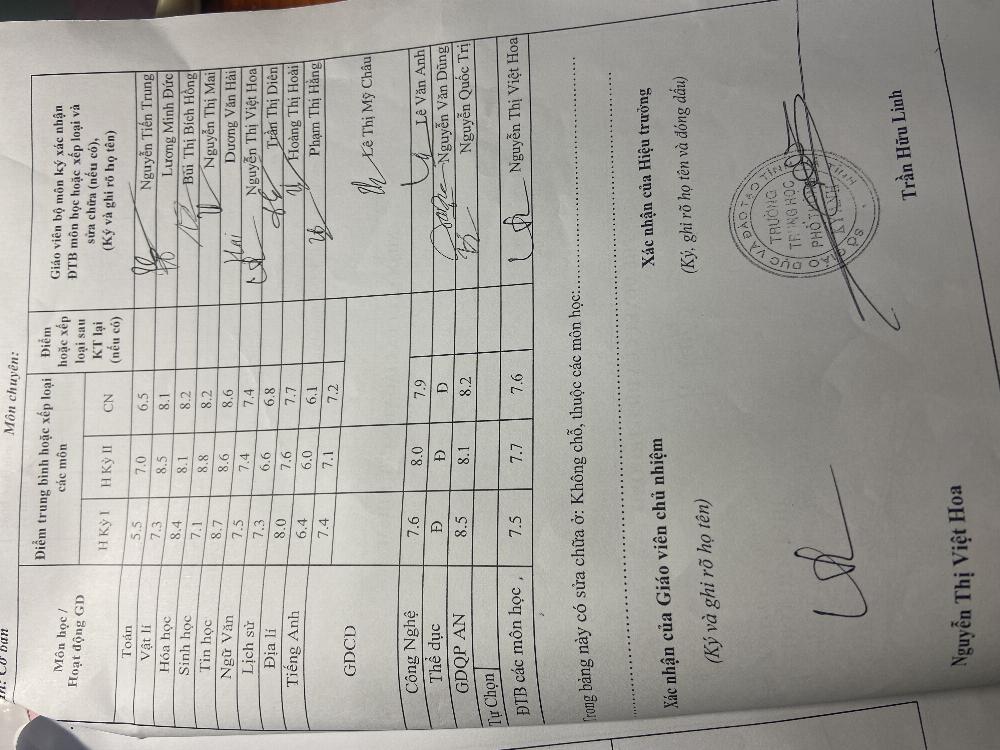 Cơ bản
Môn chuyên:
Môn học /
Hoạt động GD
Điểm trung bình hoặc xếp loại
các môn
HKỳ I HKỳ II CN
Điểm
hoặc xếp
loại sau
KT lại
(nếu có)
Giáo viên bộ môn ký xác nhận
ĐTB môn học hoặc xếp loại và
sửa chữa (nếu có),
(Ký và ghi rõ họ tên)
Toán 5.5 7.0 6.5 Nguyễn Tiến Trung
Vật lí 7.3 8.5 8.1 Lương Minh Đức
Hóa học 8.4 8.1 8.2 Bùi Thị Bích Hồng
Sinh học 7.1 8.8 8.2 Nguyễn Thị Mai
Tin học 8.7 8.6 8.6 Dương Văn Hải
Ngữ Văn 7.5 7.4 7.4 Nguyễn Thị Việt Hoa
Lịch sử 7.3 6.6 6.8 Trần Thị Diên
Địa lí 8.0 7.6 7.7 Hoàng Thị Hoài
Tiếng Anh 6.4 6.0 6.1 Phạm Thị Hằng
GDCD 7.4 7.1 7.2 Lê Thị Mỹ Châu
Công Nghệ 7.6 8.0 7.9 Lê Văn Anh
Thể dục Đ Đ Đ Nguyễn Văn Dũng
GDQP AN 8.5 8.1 8.2 Nguyễn Quốc Trị
Tự Chọn
ĐTB các môn học 7.5 7.7 7.6 Nguyễn Thị Việt Hoa
Trong bảng này có sửa chữa ở: Không chỗ, thuộc các môn học:
Xác nhận của Giáo viên chủ nhiệm
(Ký và ghi rõ họ tên)
Nguyễn Thị Việt Hoa
Xác nhận của Hiệu trưởng
(Ký, ghi rõ họ tên và đóng dấu)
TRƯỜNG
TRUNG HỌC
PHỔ
Trần Hữu Linh